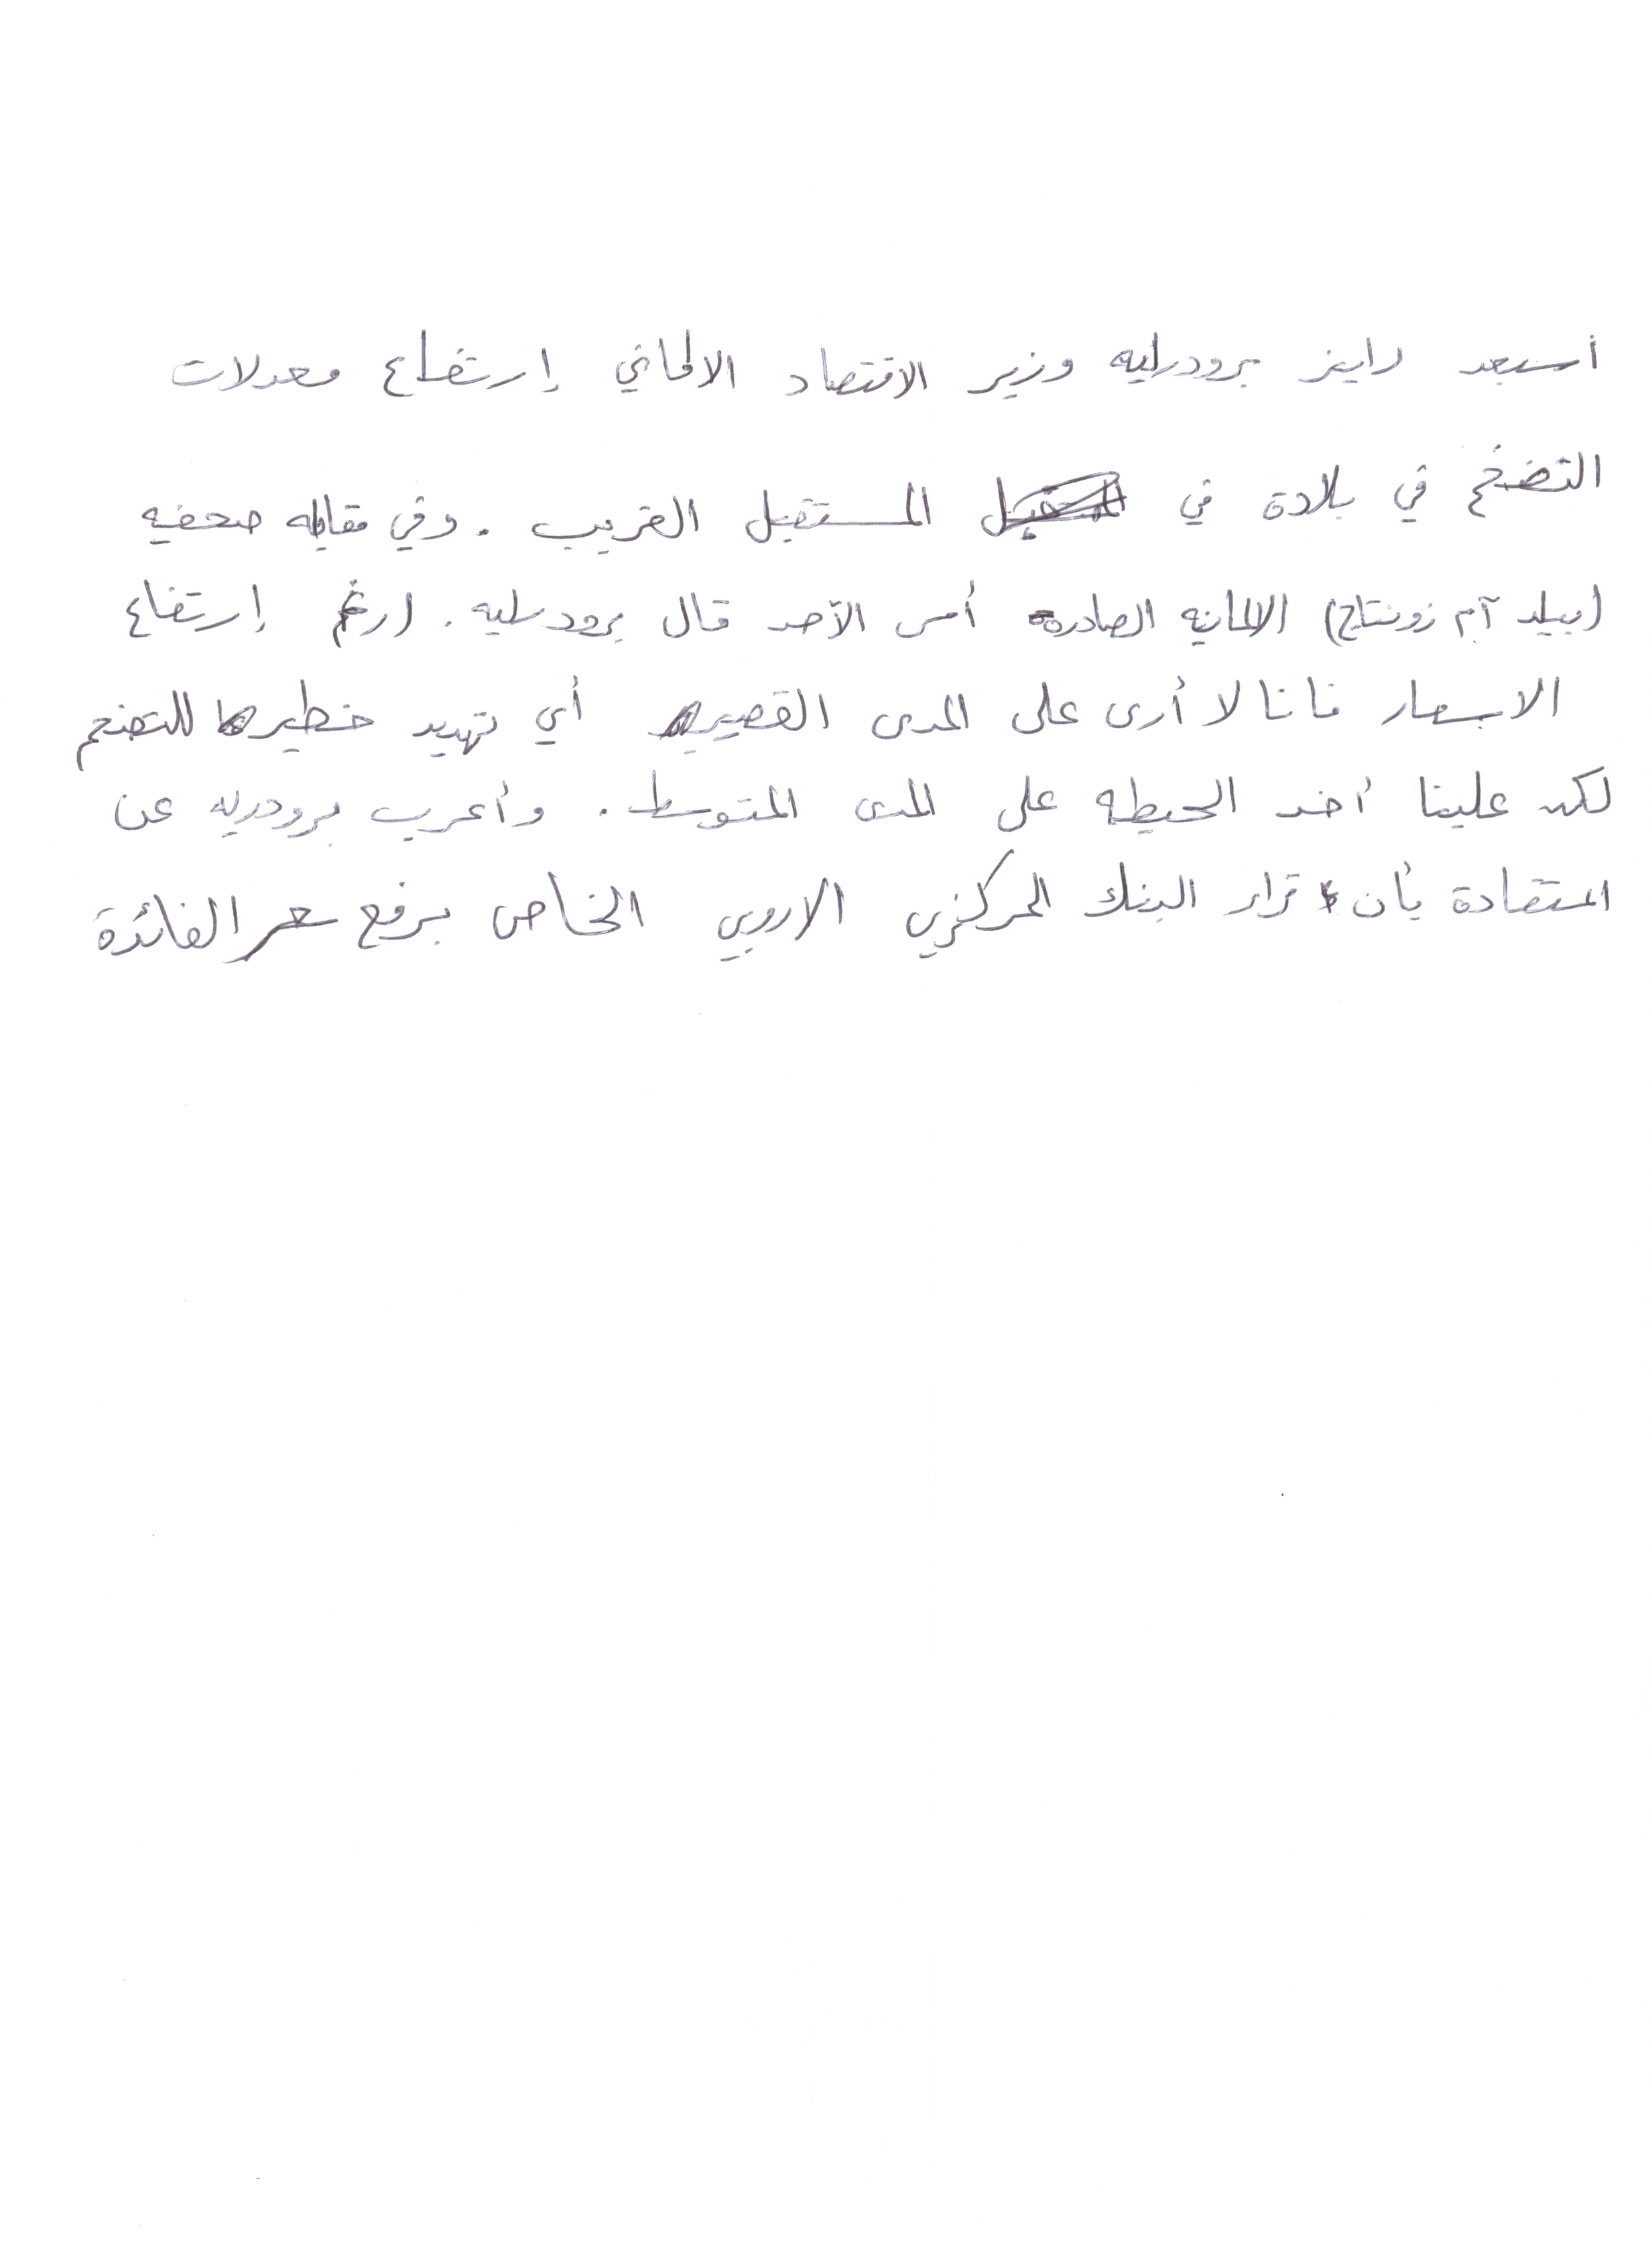 أستبعد راينر برودرليه وزير الاقتصاد الالماني إرتفاع معدلات
التضخم في بلادة في المستقبل القريب . وفي مقابله صحفيه
(بيلد آم زونتاج) الالمانيه الصادرة أمس الأحد قال برودرليه . (رغم إرتفاع
الاسعار فانا لا أرى على المدى القصير أي تهديد خطير للتضخم
لكن علينا أخد الحيطه على المدى المتوسط . وأعرب برودريه عن
اعتقادة بأن قرار البنك المركزي الاروبي الخاص برفع سعر الفائدة